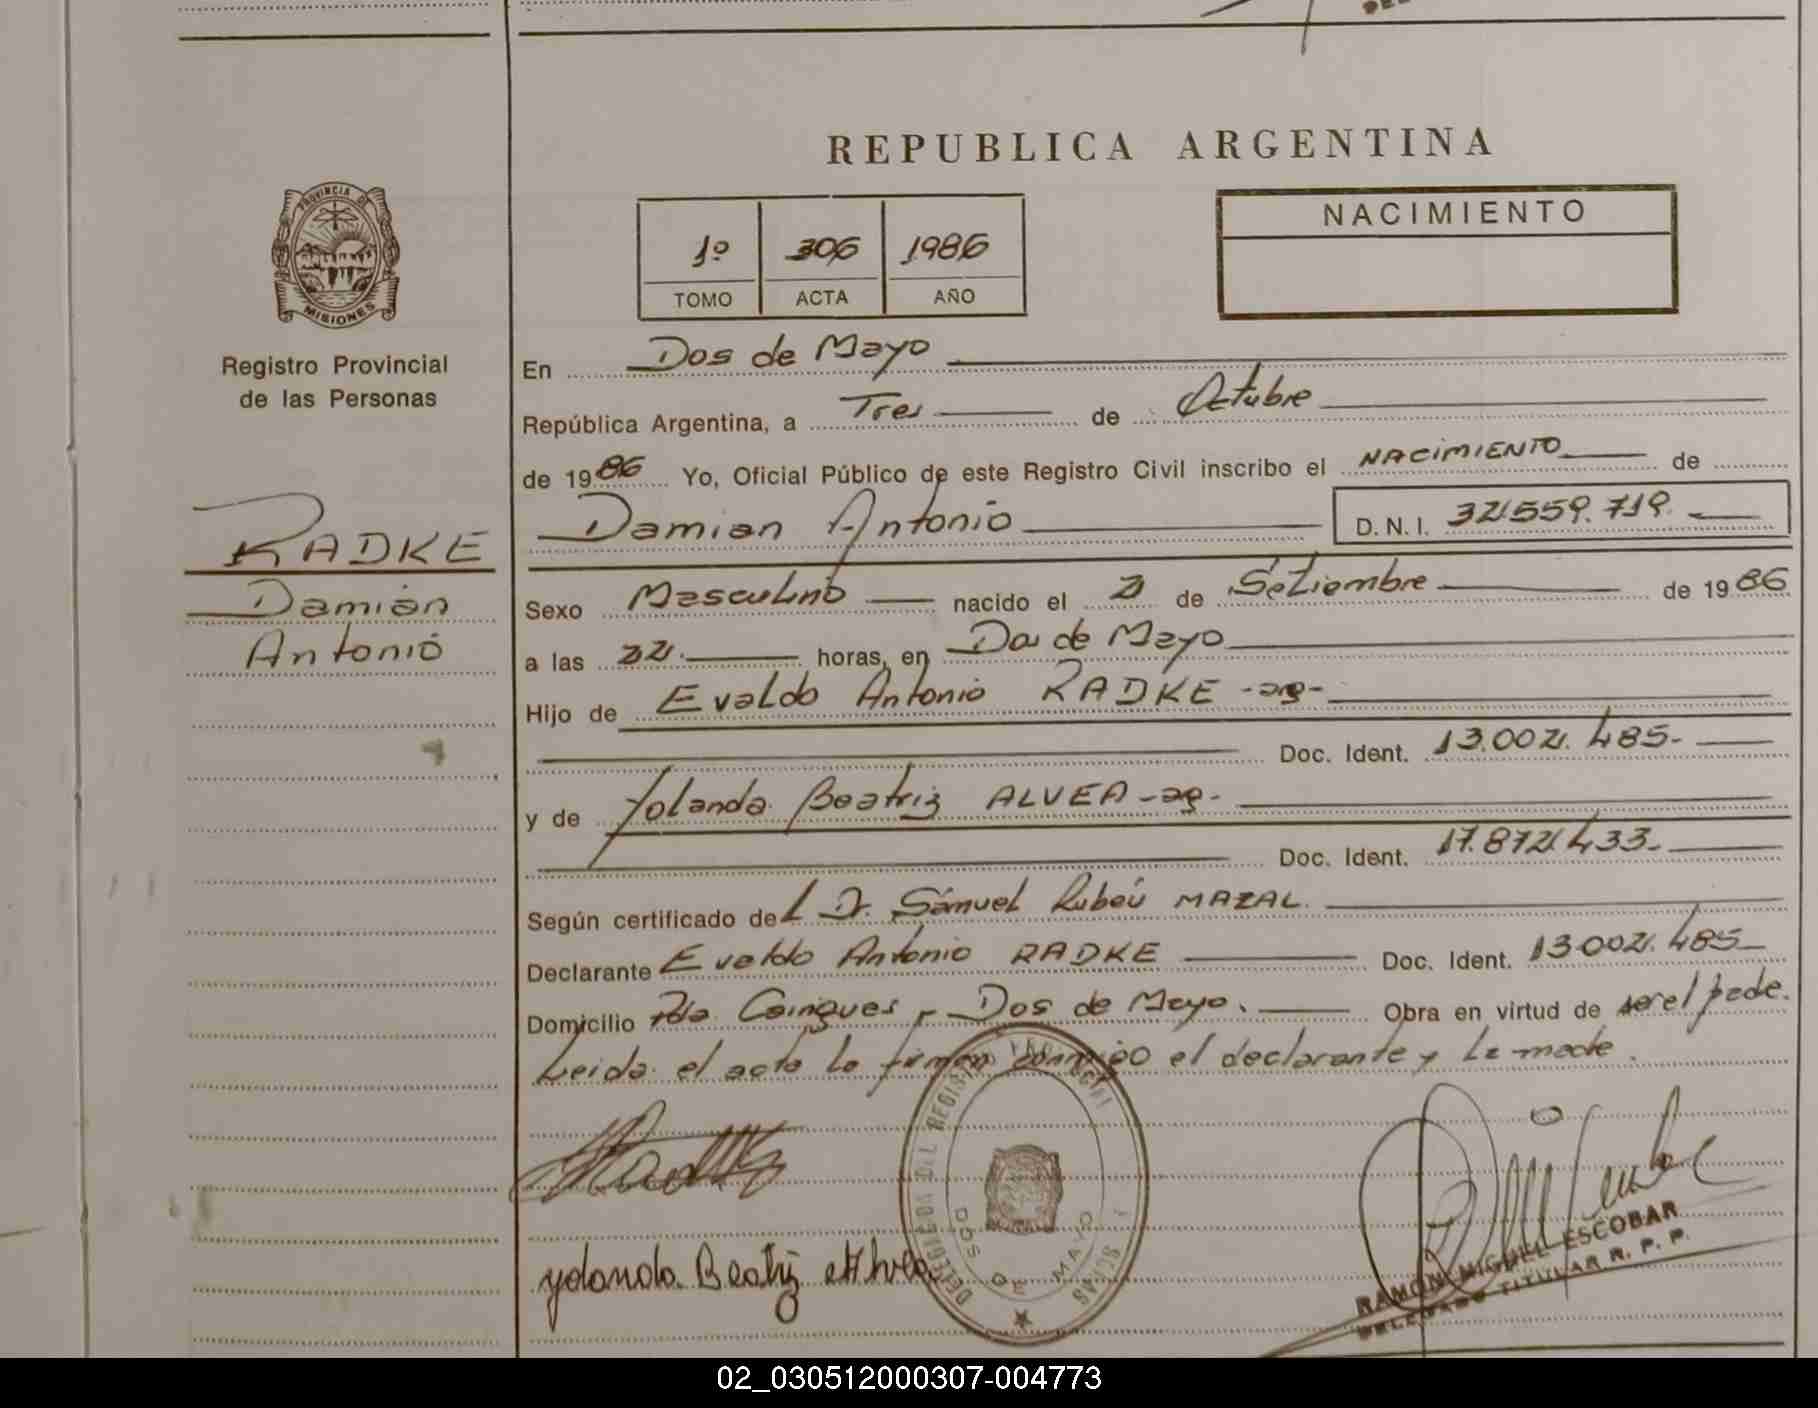 REPUBLICA ARGENTINA
PROVINCIA DE
MISIONES
Registro Provincial
de las Personas
RADKE
Damián
Antonio
1º 306 1986
TOMO ACTA AÑO
NACIMIENTO
En Dos de Mayo
República Argentina, a Tres de Octubre
de 1986 Yo, Oficial Público de este Registro Civil inscribo el NACIMIENTO de
Damian Antonio D.N.I. 32.559.719.
Sexo Masculino nacido el 2 de Setiembre de 1986
a las 22. horas, en Dos de Mayo
Hijo de Evaldo Antonio RADKE -ag-
Doc. Ident. 13.002.485-
y de Yolanda Beatriz ALVEA -ag-
Doc. Ident. 17.872.433-
Según certificado del Dr. Sámuel Rubén MAZAL.
Declarante Evaldo Antonio RADKE Doc. Ident. 13.002.485-
Domicilio Dos de Mayo. Obra en virtud de ser el padre.
Leida el acta la firman conmigo el declarante y la madre.
Yolanda Beatriz Alvea
DELEGACION DEL REGISTRO PROVINCIAL
DOS DE MAYO
RAMON MIGUEL ESCOBAR
DELEGADO TITULAR R. P. P.
02_030512000307-004773